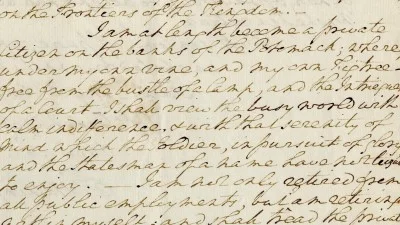 on the Frontiers of the Kingdom. —
I am at length become a private
citizen on the banks of the Potomack; where
under my own vine, and my own Figtree—
free from the bustle of a camp, and the Intrigues
of a Court—I shall view the busy world with
calm indifference, & with that serenity of
mind which the soldier, in pursuit of glory
and the Statesman of a name have not leisure
to enjoy. — I am not only retired from
all public employments, but am retiring
within myself; and shall tread the private